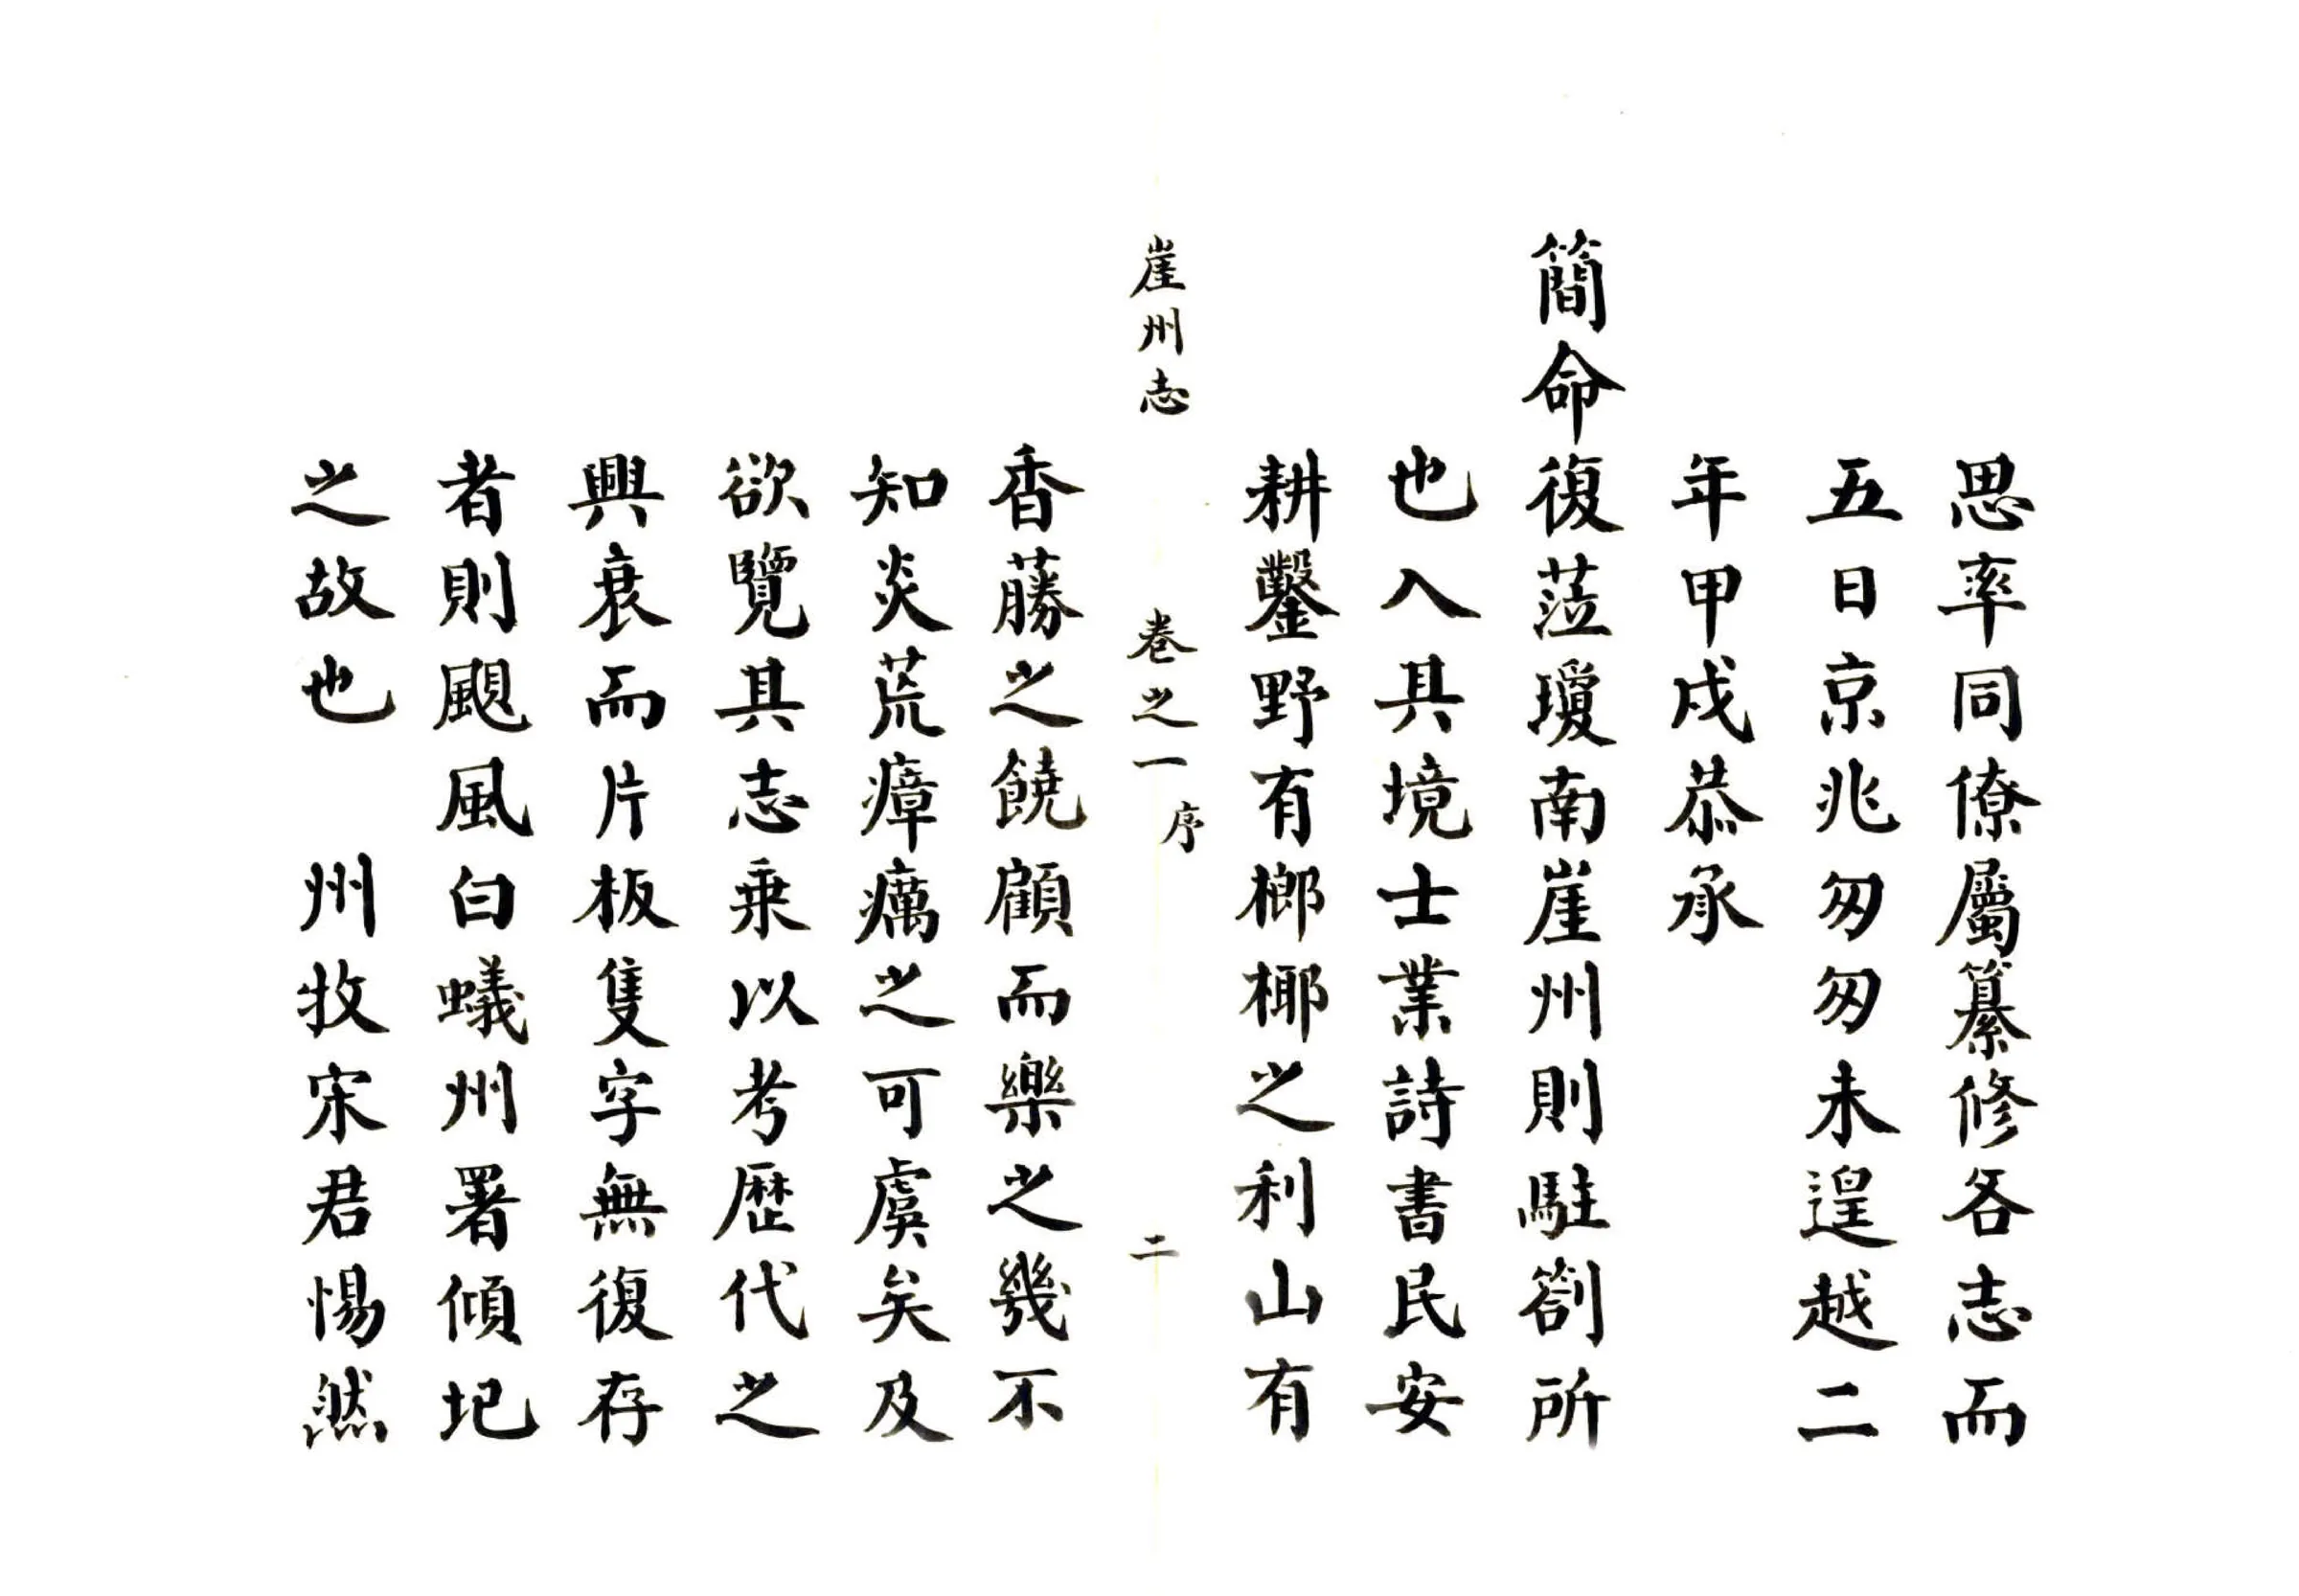 思率同僚屬纂修各志而
五日京兆匆匆未遑越二
年甲戌恭承
簡命復蒞瓊南崖州則駐劄所
也入其境士業詩書民安
耕鑿野有榔椰之利山有
崖州志 卷之一 序 二
香藤之饒顧而樂之幾不
知炎荒瘴癘之可虞矣及
欲覽其志乗以考歷代之
興衰而片板隻字無復存
者則颶風白蟻州署傾圮
之故也 州牧宋君惕然